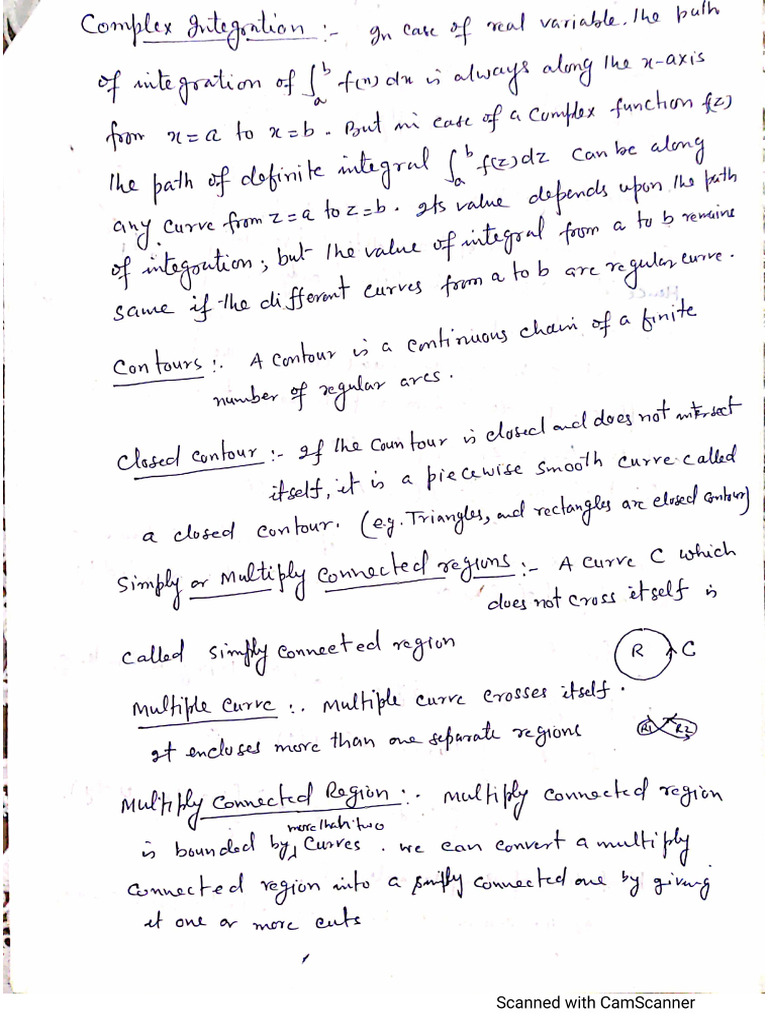 Complex Integration :- In case of real variable. The path
of integration of ∫_a^b f(x) dx is always along the x-axis
from x = a to x = b. But in case of a complex function f(z)
the path of definite integral ∫_a^b f(z) dz can be along
any curve from z = a to z = b. Its value depends upon the path
of integration; but the value of integral from a to b remains
same if the different curves from a to b are regular curve.
Contours :. A contour is a continuous chain of a finite
number of regular arcs.
Closed contour :- If the countour is closed and does not intersect
itself, it is a piecewise smooth curve called
a closed contour. (e.g. Triangles, and rectangles are closed contour)
Simply or Multiply Connected regions :- A curve C which
does not cross itself is
called simply connected region
R C
Multiple Curve :. Multiple curve crosses itself.
It encluses more than one separate regions
R1 R2
Multiply Connected Region :. Multiply connected region
more than two
is bounded by curves. We can convert a multiply
connected region into a simply connected one by giving
it one or more cuts
Scanned with CamScanner